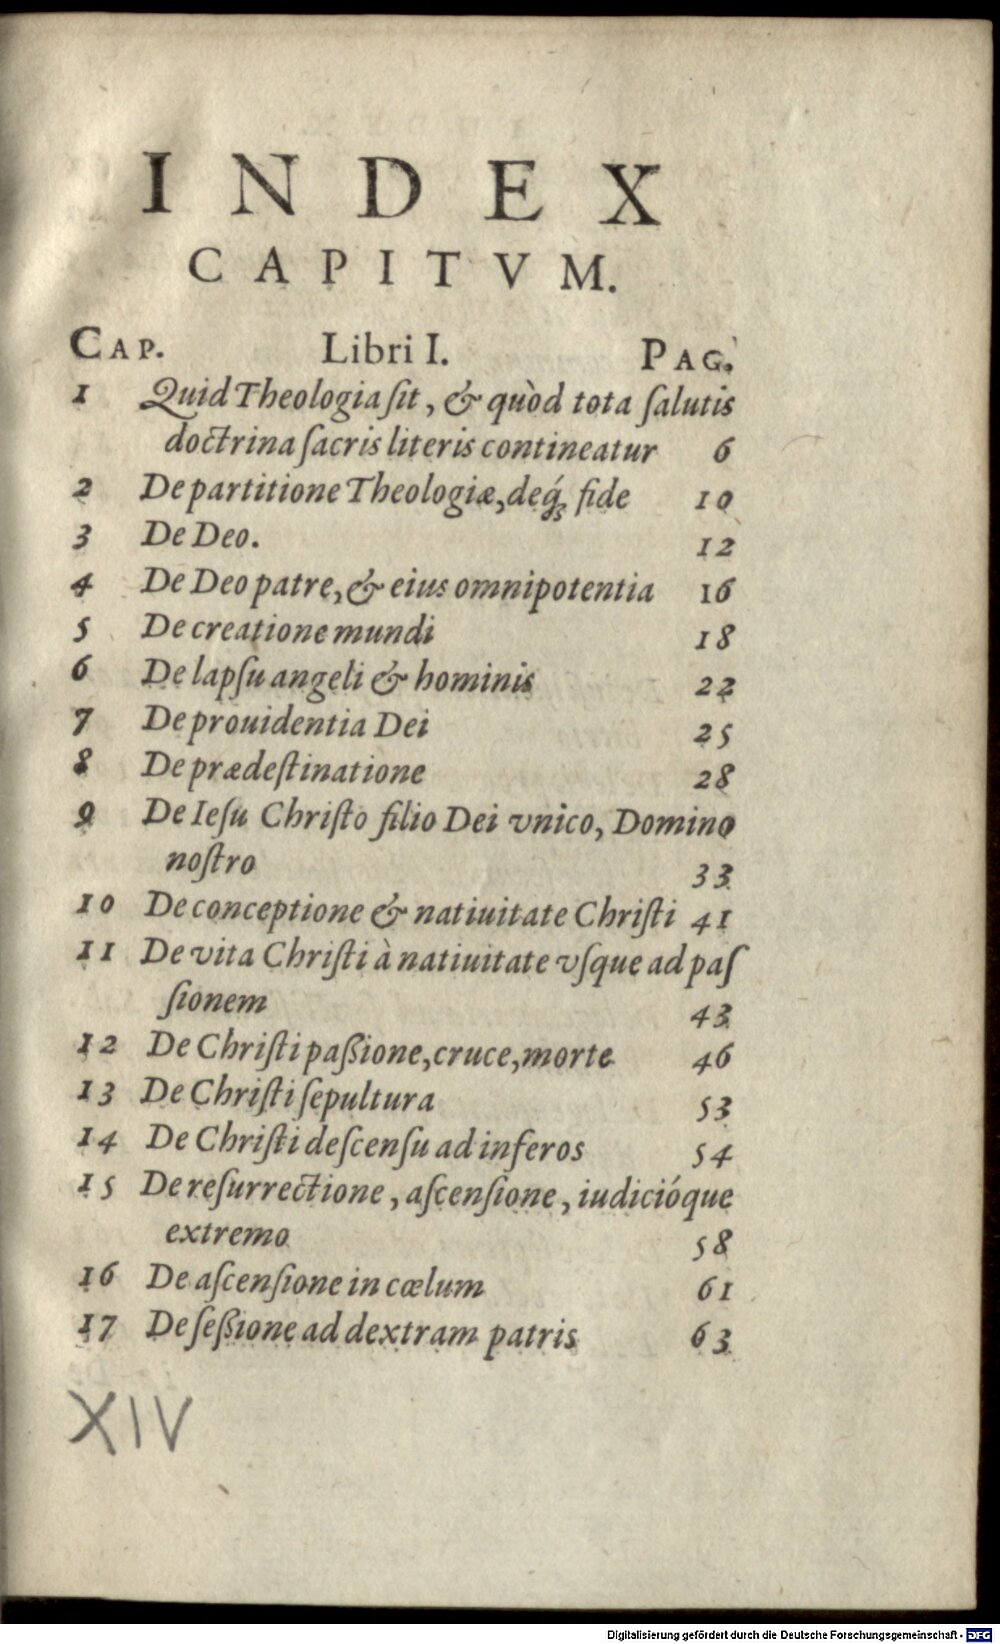 INDEX
CAPITVM.
CAP. Libri I. PAG.
1 Quid Theologia ſit, & quòd tota ſalutis
doctrina ſacris literis contineatur 6
2 De partitione Theologiæ, deq́ꝫ fide 10
3 De Deo. 12
4 De Deo patre, & eius omnipotentia 16
5 De creatione mundi 18
6 De lapſu angeli & hominis 22
7 De prouidentia Dei 25
8 De prædeſtinatione 28
9 De Ieſu Chriſto filio Dei vnico, Domino
noſtro 33
10 De conceptione & natiuitate Chriſti 41
11 De vita Chriſti à natiuitate vſque ad paſ
ſionem 43
12 De Chriſti paßione, cruce, morte 46
13 De Chriſti ſepultura 53
14 De Chriſti deſcenſu ad inferos 54
15 De reſurrectione, aſcenſione, iudicióque
extremo 58
16 De aſcenſione in cœlum 61
17 De ſeßione ad dextram patris 63
XIV
Digitalisierung gefördert durch die Deutsche Forschungsgemeinschaft - DFG